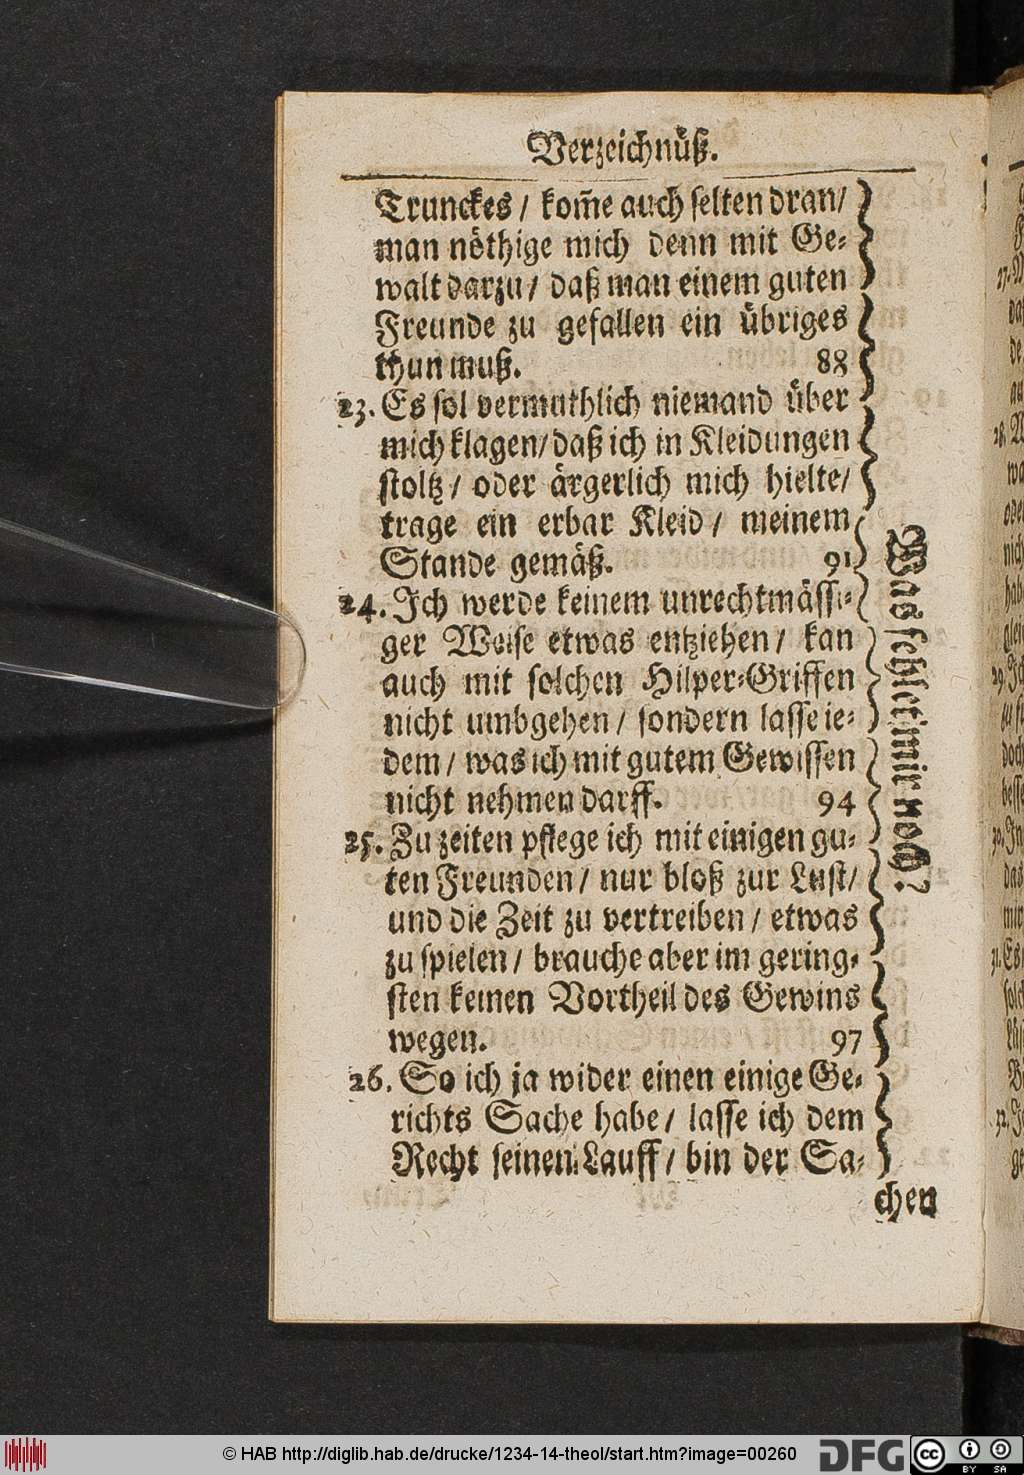 Verzeichnüß.
Trunckes / kom̃e auch selten dran/
man nöthige mich denn mit Ge-
walt darzu / daß man einem guten
Freunde zu gefallen ein übriges
thun muß. 88
23. Es sol vermuthlich niemand über
mich klagen/ daß ich in Kleidungen
stoltz / oder ärgerlich mich hielte/
trage ein erbar Kleid / meinem
Stande gemäß. 91
24. Ich werde keinem unrechtmässi-
ger Weise etwas entziehen / kan
auch mit solchen Hilper-Griffen
nicht umbgehen / sondern lasse ie-
dem / was ich mit gutem Gewissen
nicht nehmen darff. 94
25. Zu zeiten pflege ich mit einigen gu-
ten Freunden / nur bloß zur Lust/
und die Zeit zu vertreiben / etwas
zu spielen / brauche aber im gering-
sten keinen Vortheil des Gewins
wegen. 97
26. So ich ja wider einen einige Ge-
richts Sache habe / lasse ich dem
Recht seinen Lauff / bin der Sa-
chen
Was fehlet mir noch?
© HAB http://diglib.hab.de/drucke/1234-14-theol/start.htm?image=00260
DFG
cc
BY SA